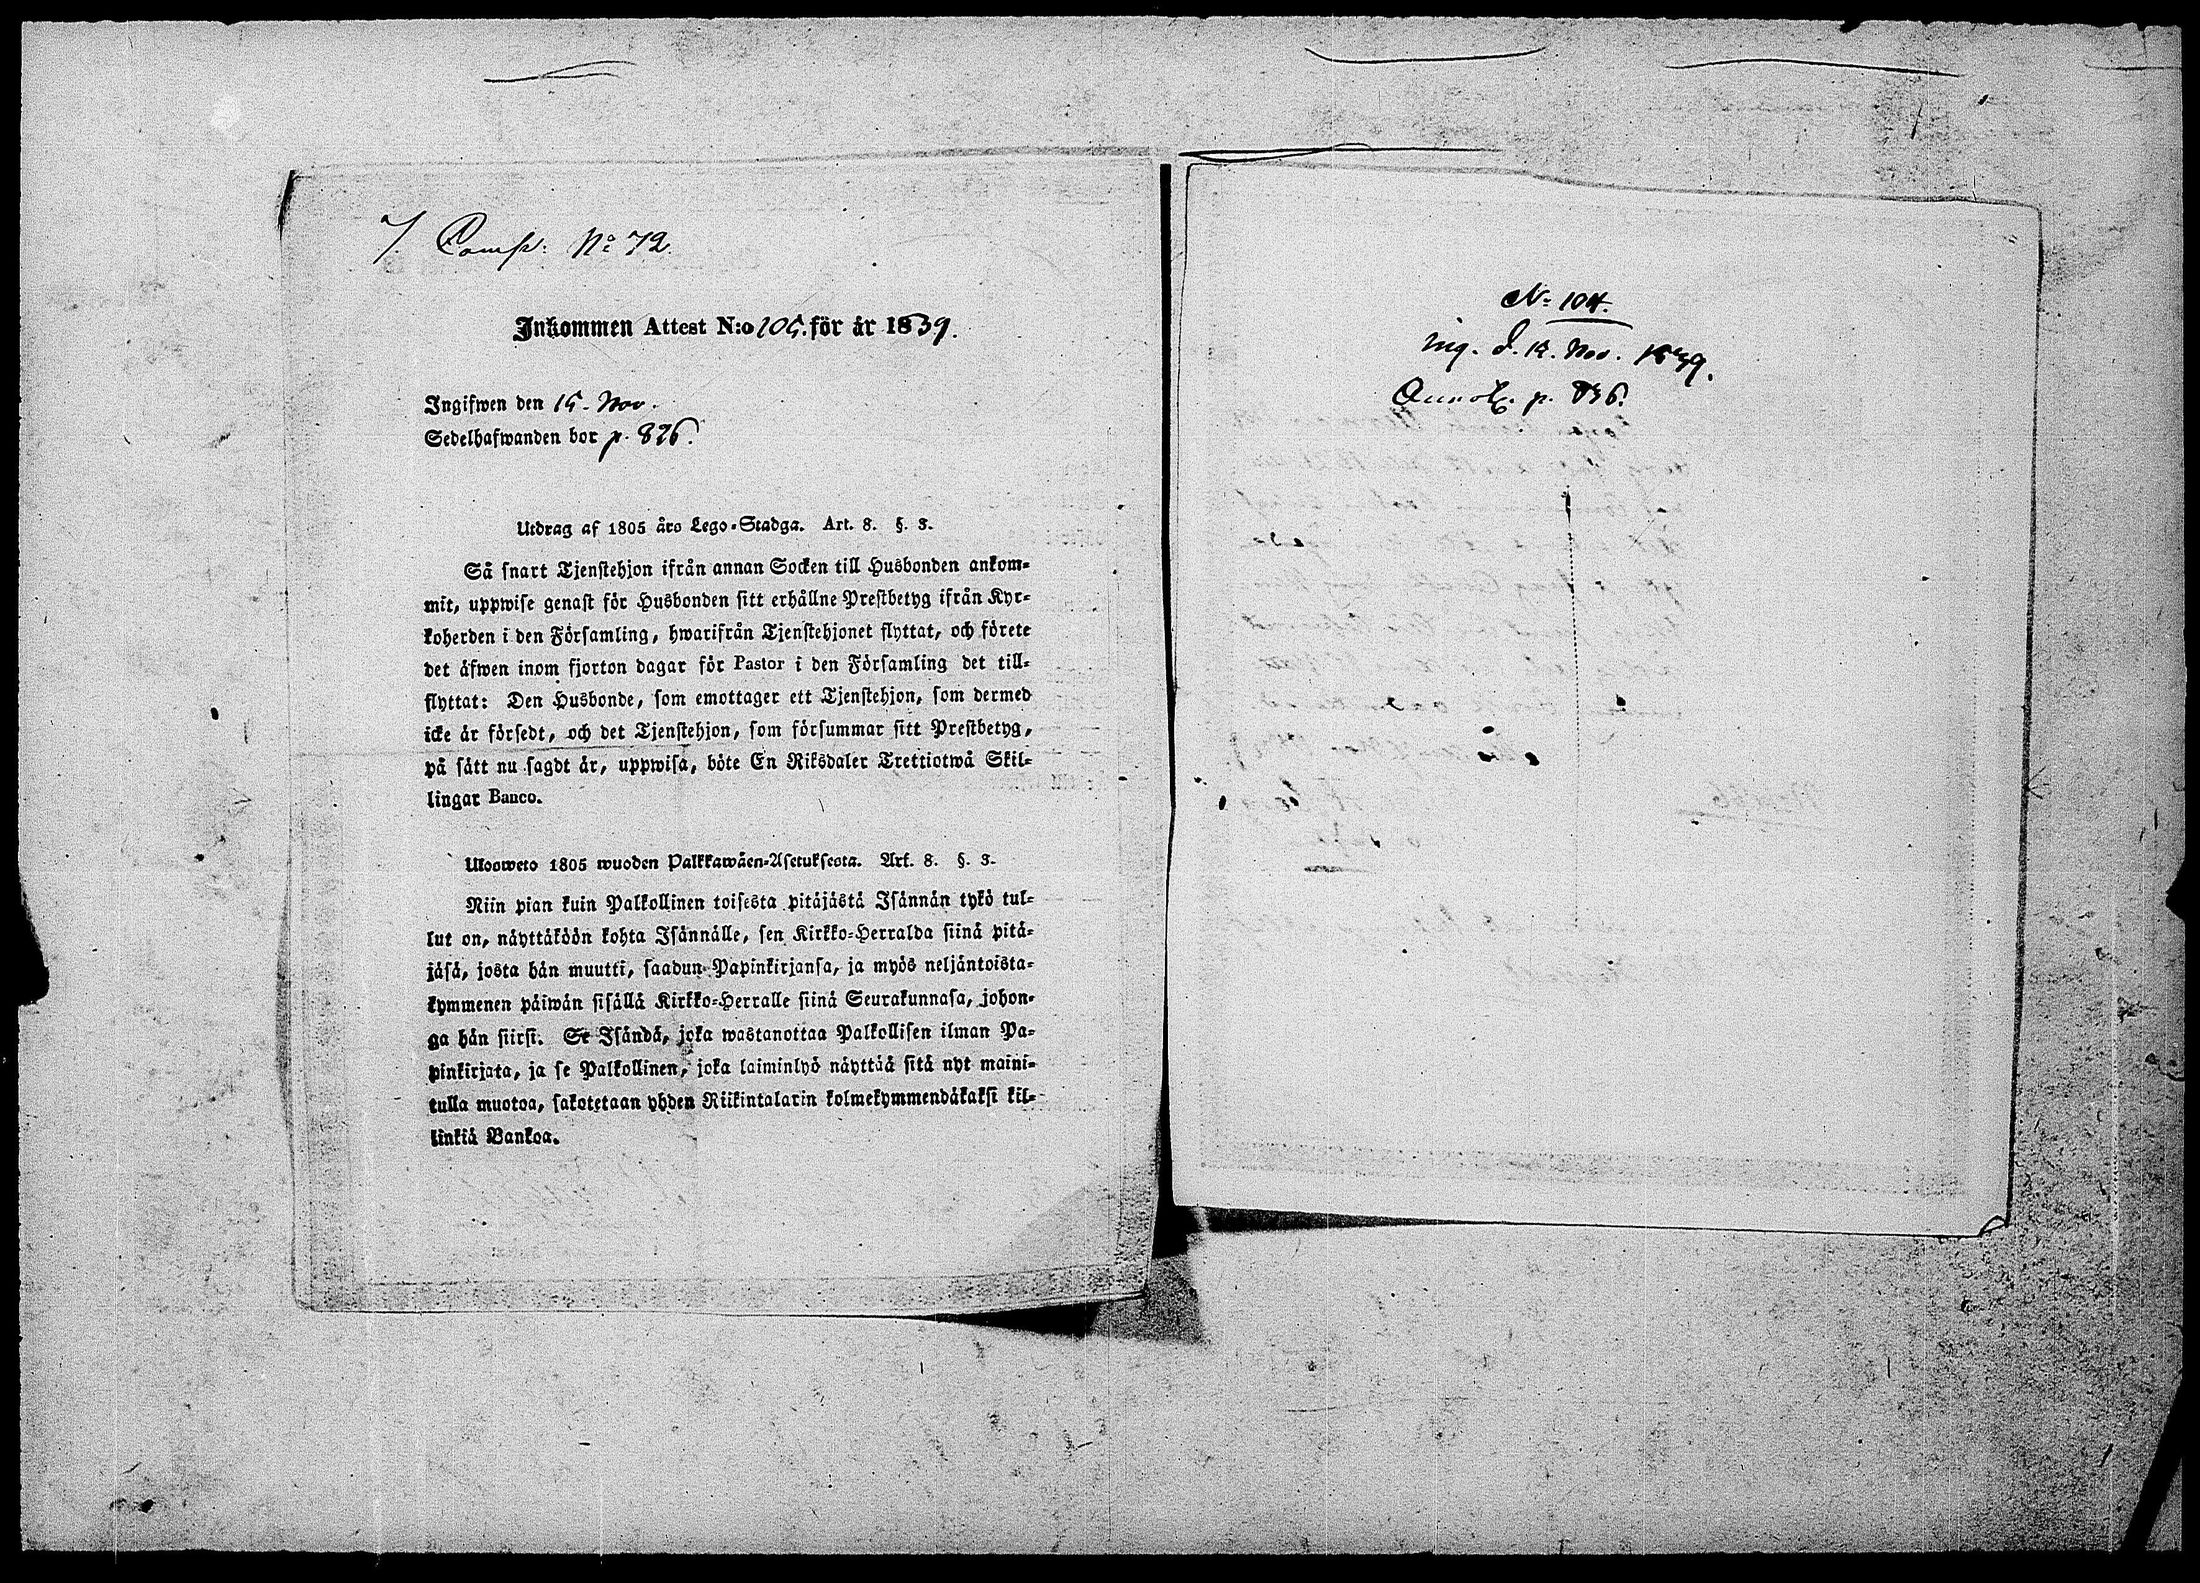 7. Comp: No 72.
Inkommen Attest N:o 105. för år 1839.
Ingifwen den 15. Nov.
Sedelhafwanden bor p. 826.
Utdrag af 1805 års Lego-Stadga. Art. 8. §. 3.
Så snart Tjenstehjon ifrån annan Socken till Husbonden ankom-
mit, uppwise genast för Husbonden sitt erhållne Prestbetyg ifrån Kyr-
koherden i den Församling, hwarifrån Tjenstehjonet flyttat, och förete
det äfwen inom fjorton dagar för Pastor i den Församling det till-
flyttat: Den Husbonde, som emottager ett Tjenstehjon, som dermed
icke är försedt, och det Tjenstehjon, som försummar sitt Prestbetyg,
på sätt nu sagdt är, uppwisa, böte En Riksdaler Trettiotwå Skil-
lingar Banco.
Ulosweto 1805 wuoden Palkkawäen-Asetuksesta. Art. 8. §. 3.
Niin pian kuin Palkollinen toisesta pitäjästä Isännän tykö tul-
lut on, näyttäköön kohta Isännälle, sen Kirkko-Herralda siinä pitä-
jäsä, josta hän muutti, saadun Papinkirjansa, ja myös neljäntoista-
kymmenen päiwän sisällä Kirkko-Herralle siinä Seurakunnasa, johon-
ga hän siirsi. Se Isändä, joka wastanottaa Palkollisen ilman Pa-
pinkirjata, ja se Palkollinen, joka laiminlyö näyttää sitä nyt maini-
tulla muotoa, sakotetaan yhden Riikintalarin kolmekymmendäkaksi kil-
linkiä Bankoa.
No 104.
ing. d. 12. Nov. 1839.
Annot. p. 836.